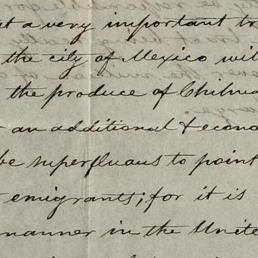 a very important
the city of Mexico
the produce of
an additional &
be superfluous to point
emigrants; for it is
manner in the Unite